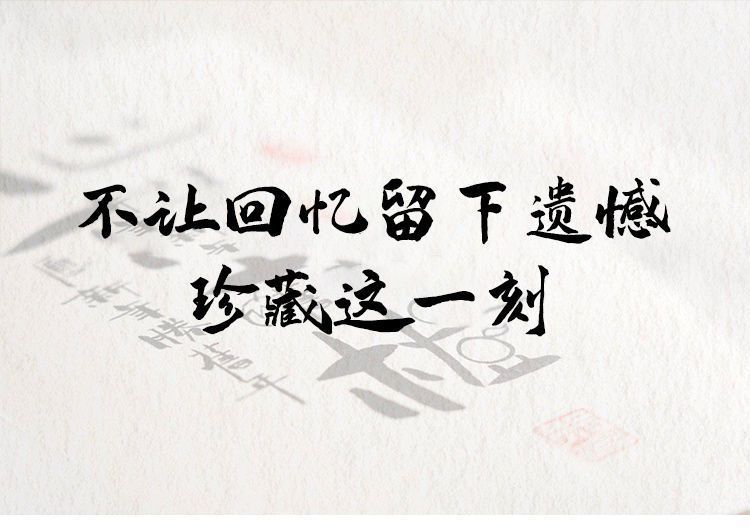 不让回忆留下遗憾
珍藏这一刻